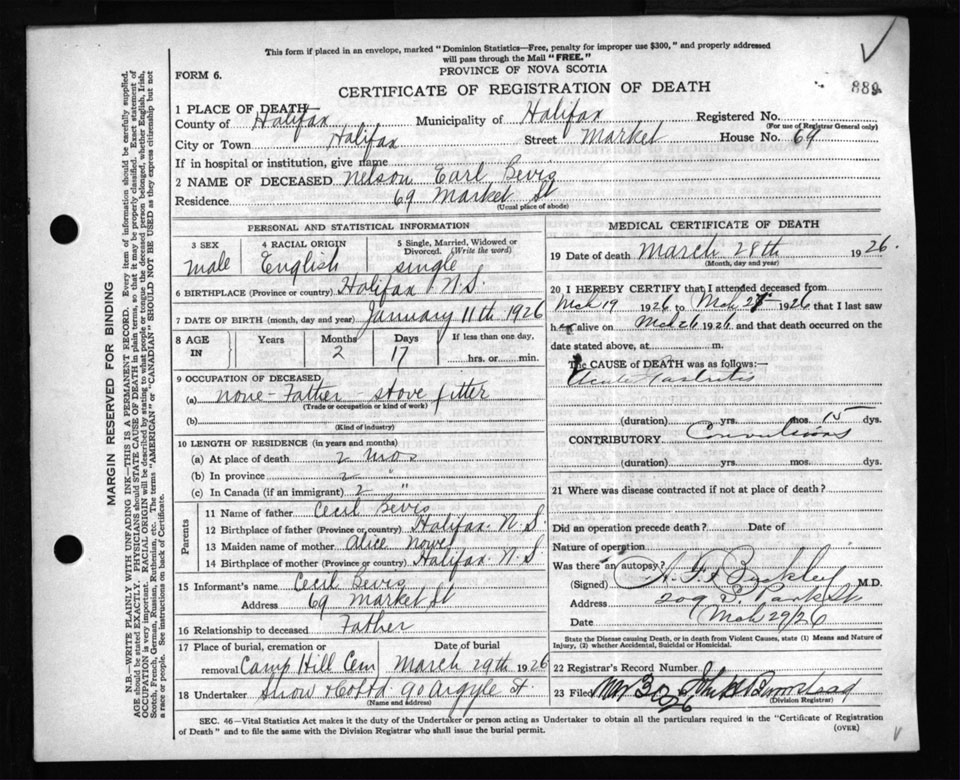 This form if placed in an envelope, marked "Dominion Statistics—Free, penalty for improper use $300," and properly addressed
will pass through the Mail "FREE."
PROVINCE OF NOVA SCOTIA
FORM 6.
CERTIFICATE OF REGISTRATION OF DEATH
889
1 PLACE OF DEATH—
County of Halifax Municipality of Halifax Registered No.
(For use of Registrar General only)
City or Town Halifax Street Market House No. 69
If in hospital or institution, give name
2 NAME OF DECEASED Nelson Earl Bevis
Residence 69 Market St
(Usual place of abode)
PERSONAL AND STATISTICAL INFORMATION
3 SEX 4 RACIAL ORIGIN 5 Single, Married, Widowed or Divorced. (Write the word)
Male English single
6 BIRTHPLACE (Province or country) Halifax N.S.
7 DATE OF BIRTH (month, day and year) January 11th 1926
8 AGE IN Years Months Days If less than one day,
2 17 hrs. or min.
9 OCCUPATION OF DECEASED
(a) none - Father - stove fitter
(Trade or occupation or kind of work)
(b)
(Kind of industry)
10 LENGTH OF RESIDENCE (in years and months)
(a) At place of death 2 mos
(b) In province 2 "
(c) In Canada (if an immigrant) 2 "
Parents
11 Name of father Cecil Bevis
12 Birthplace of father (Province or country) Halifax N.S.
13 Maiden name of mother Alice
14 Birthplace of mother (Province or country) Halifax N.S
15 Informant's name Cecil Bevis
Address 69 Market St
16 Relationship to deceased Father
17 Place of burial, cremation or removal Camp Hill Cem Date of burial March 29th 1926
18 Undertaker Snow & Co Ltd 90 Argyle St.
(Name and address)
MEDICAL CERTIFICATE OF DEATH
19 Date of death March 28th 1926.
(Month, day and year)
20 I HEREBY CERTIFY that I attended deceased from
Mch 19 1926 to Mch 1926 that I last saw
h alive on Mch 26 1926 and that death occurred on the
date stated above, at m.
The CAUSE OF DEATH was as follows:—
Acute Gastritis
(duration) yrs. mos. 15 dys.
CONTRIBUTORY Convulsions
(duration) yrs. mos. dys.
21 Where was disease contracted if not at place of death?
Did an operation precede death? Date of
Nature of operation
Was there an autopsy?
(Signed) M.D.
Address 209 S. Park St
Date Mch 29/26
State the Disease causing Death, or in death from Violent Causes, state (1) Means and Nature of
Injury, (2) whether Accidental, Suicidal or Homicidal.
22 Registrar's Record Number
23 Filed Mar 30 26
(Division Registrar)
SEC. 46—Vital Statistics Act makes it the duty of the Undertaker or person acting as Undertaker to obtain all the particulars required in the "Certificate of Registration
of Death" and to file the same with the Division Registrar who shall issue the burial permit.
(OVER)
MARGIN RESERVED FOR BINDING
N.B.—WRITE PLAINLY WITH UNFADING INK—THIS IS A PERMANENT RECORD. Every item of information should be carefully supplied.
AGE should be stated EXACTLY. PHYSICIANS should STATE CAUSE OF DEATH in plain terms, so that it may be properly classified. Exact statement of
OCCUPATION is very important. RACIAL ORIGIN will be described by stating to what people or tongue the deceased person belonged, whether English, Irish,
Scotch, French, German, Russian, Ruthenian, etc. The terms "AMERICAN" or "CANADIAN" SHOULD NOT BE USED as they express citizenship but not
a race or people. See instructions on back of Certificate.